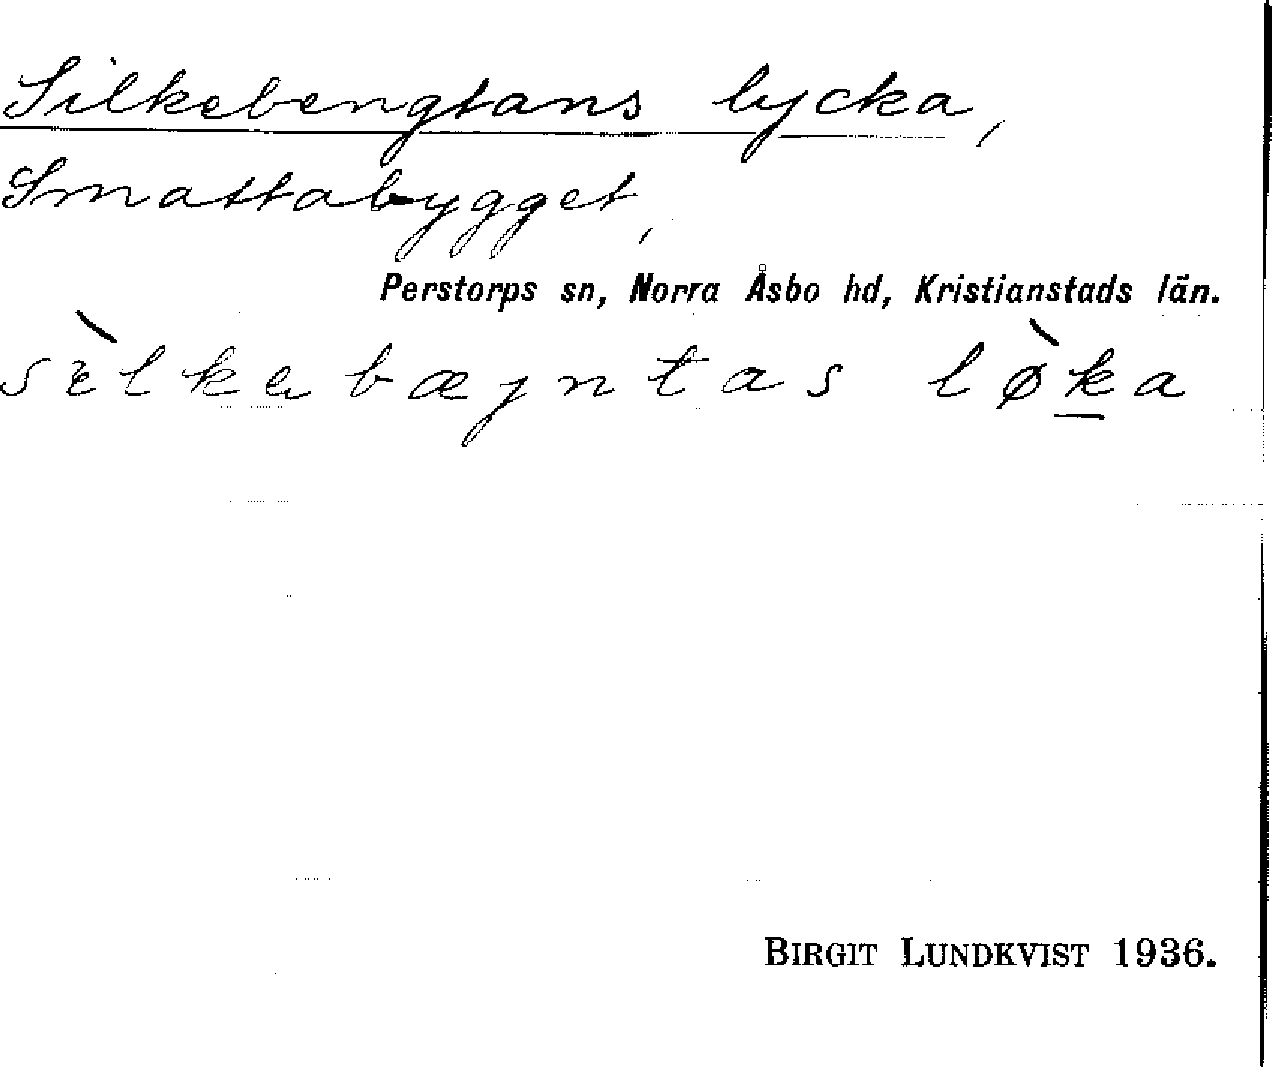 Silkebengtans lycka,
Smattabygget,
Perstorps sn, Norra Åsbo hd, Kristianstads län.
sèlkebæjntas lø̀ka
BIRGIT LUNDKVIST 1936.